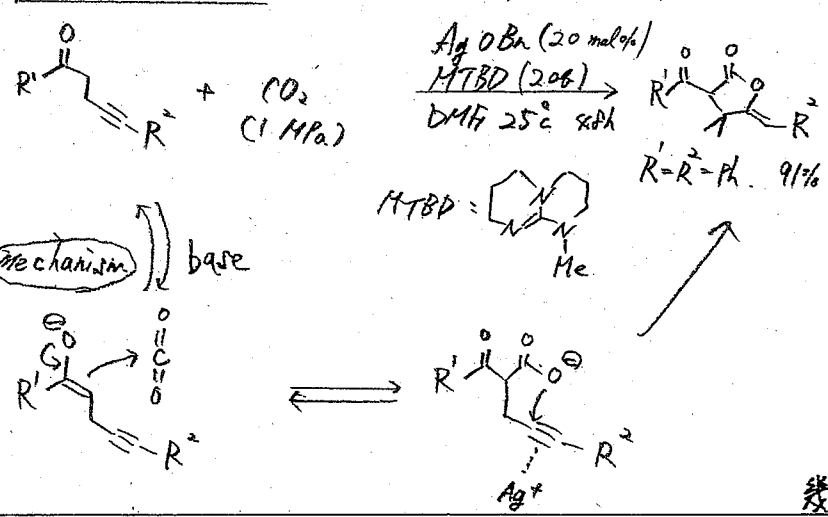 O
R¹
R²
+
CO₂
(1 MPa)
AgOBn (20 mol%)
MTBD (2.0eq)
DMF, 25℃ 48h
O O
R¹
O
R²
R¹=R²=Ph. 91%
MTBD =
N
N N
Me
Mechanism
base
⊖
O
R¹
R²
O
C
O
O O
R¹
O ⊖
R²
Ag⁺